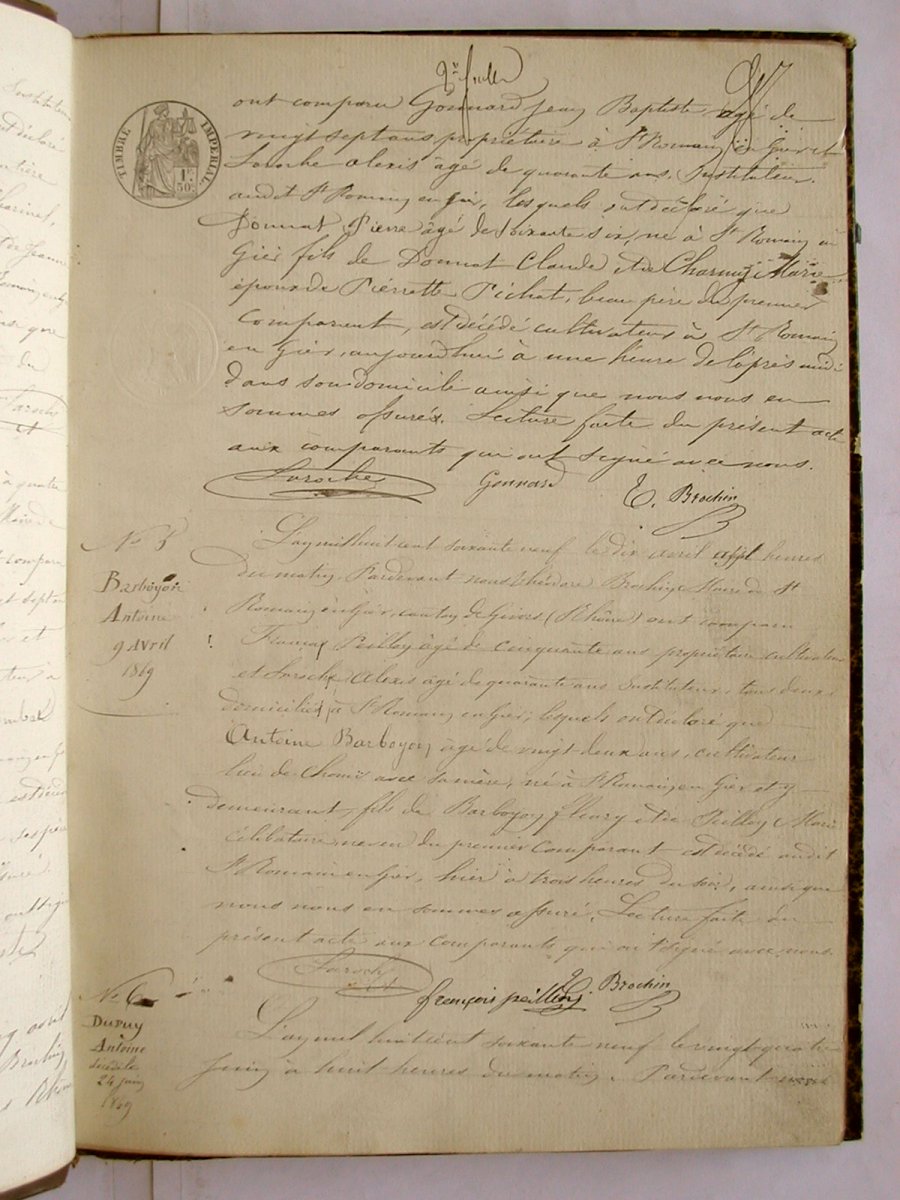 2e feuille
TIMBRE IMPERIAL
1F. 50c.
ont comparu Gonnard Jean Baptiste agé de
vingt sept ans propriétaire à St Romain en Gier et
Laroche Alexis âgé de quarante ans, Instituteur
audit St Romain en Gier, lesquels ont déclaré que
Donnat Pierre âgé de soixante six, né à St Romain en
Gier fils de Donnat Claude et de Charmy Marie
époux de Pierrette Pichat, beau père du premier
Comparant, est décédé cultivateur à St Romain
en Gier, aujourd'hui à une heure de l'après midi
dans son domicile ainsi que nous nous en
sommes assurés. Lecture faite du présent acte
aux comparants qui ont signé avec nous.
Laroche Gonnard T. Brochin
No 5
Barboyon
Antoine
9 Avril
1869
L'an mil huit cent soixante neuf le dix avril à sept heures
du matin, Pardevant nous Théodore Brochin Maire de St
Romain en Gier, canton de Givors (Rhône) ont comparu
François Peillon âgé de cinquante ans propriétaire cultivateur
et Laroche Alexis âgé de quarante ans Instituteur, tous deux
domiciliés à St Romain en Gier, lesquels ont déclaré que
Antoine Barboyon âgé de vingt deux ans, cultivateur
lieu de avec sa mère, né à St Romain en Gier et y
demeurant, fils de Barboyon fleury et de Peillon Marie
célibataire, neveu du premier comparant est décédé audit
St Romain en Gier, hier à trois heures du soir, ainsi que
nous nous en sommes assuré. Lecture faite du
présent acte aux comparants qui ont signé avec nous.
Laroche françois peillon T. Brochin
No 6
Dupuy
Antoine
décédé le
24 juin
1869
L'an mil huit cent soixante neuf le vingt quatre
Juin à huit heures du matin, Pardevant nous